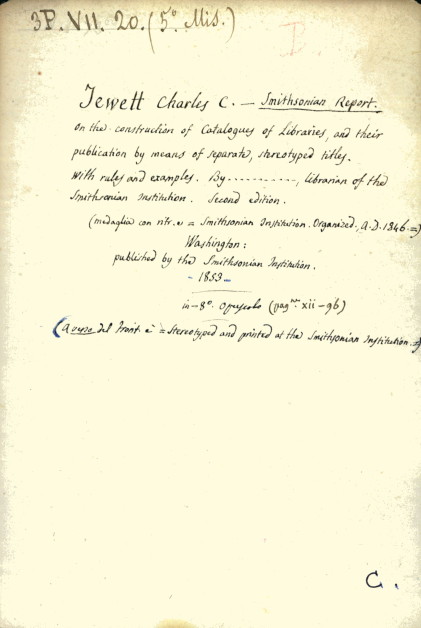 3P. VII. 20. (5º Mis.)
Jewett Charles C. — Smithsonian Report.
On the construction of Catalogues of Libraries, and their
publication by means of separate, stereotyped titles.
With rules and examples. By ..........., librarian of the
Smithsonian Institution. Second edition.
(medaglia con ritr. e = Smithsonian Institution. Organized, A.D. 1846 =)
Washington:
published by the Smithsonian Institution.
- 1853 -
in-8º. opuscolo (pag. xii-96)
(a verso del front. è = Stereotyped and printed at the Smithsonian Institution. =)
C.